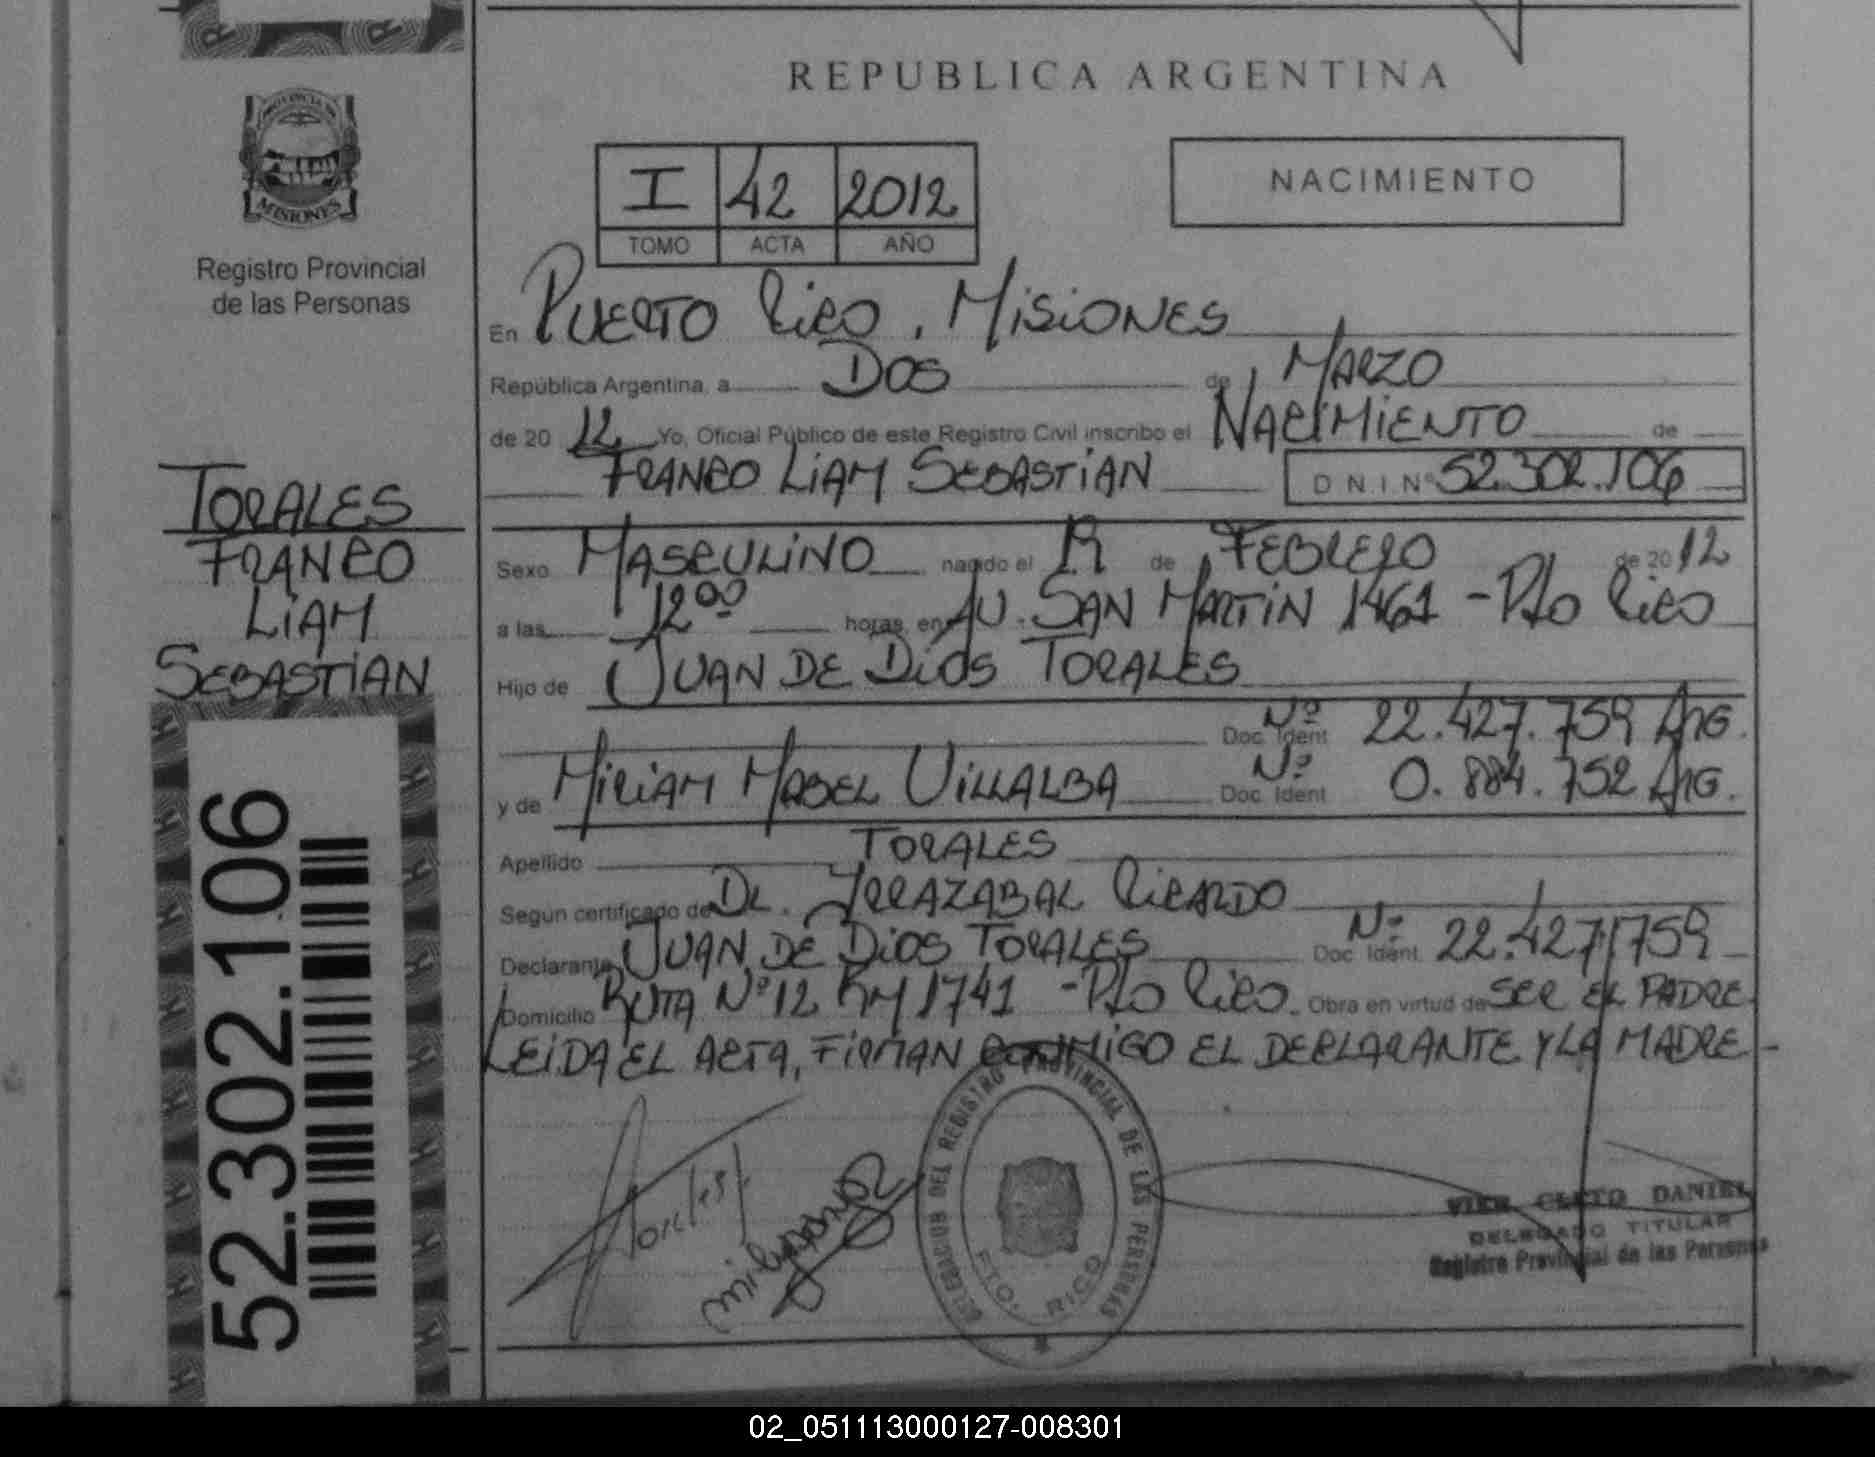 REPUBLICA ARGENTINA
PROVINCIA DE
MISIONES
Registro Provincial
de las Personas
I 42 2012
TOMO ACTA AÑO
NACIMIENTO
En PUERTO RICO, MISIONES
República Argentina, a DOS de MARZO
de 20 12 Yo, Oficial Público de este Registro Civil inscribo el NACIMIENTO de
FRANCO LIAM SEBASTIAN D.N.I. Nº 52.302.106
TORALES
FRANCO
LIAM
SEBASTIAN
52.302.106
Sexo MASCULINO nacido el de FEBRERO de 20 12
a las 12 00 horas, en AV. SAN MARTIN 1461 - Pto RICO
Hijo de JUAN DE DIOS TORALES
Nº Doc. Ident. 22.427.759 ARG.
y de MIRIAM MABEL VILLALBA Nº Doc. Ident. 0.884.752 ARG.
Apellido TORALES
Segun certificado de DR. IRRAZABAL RICARDO
Declarante JUAN DE DIOS TORALES Nº Doc. Ident. 22.427.759
Domicilio RUTA Nº 12 KM 1741 - Pto RICO. Obra en virtud de SER EL PADRE
LEIDA EL ACTA, FIRMAN CONMIGO EL DECLARANTE Y LA MADRE -
DELEGACION DEL REGISTRO PROVINCIAL DE LAS PERSONAS
PTO. RICO
VIER CLETO DANIEL
DELEGADO TITULAR
Registro Provincial de las Personas
02_051113000127-008301